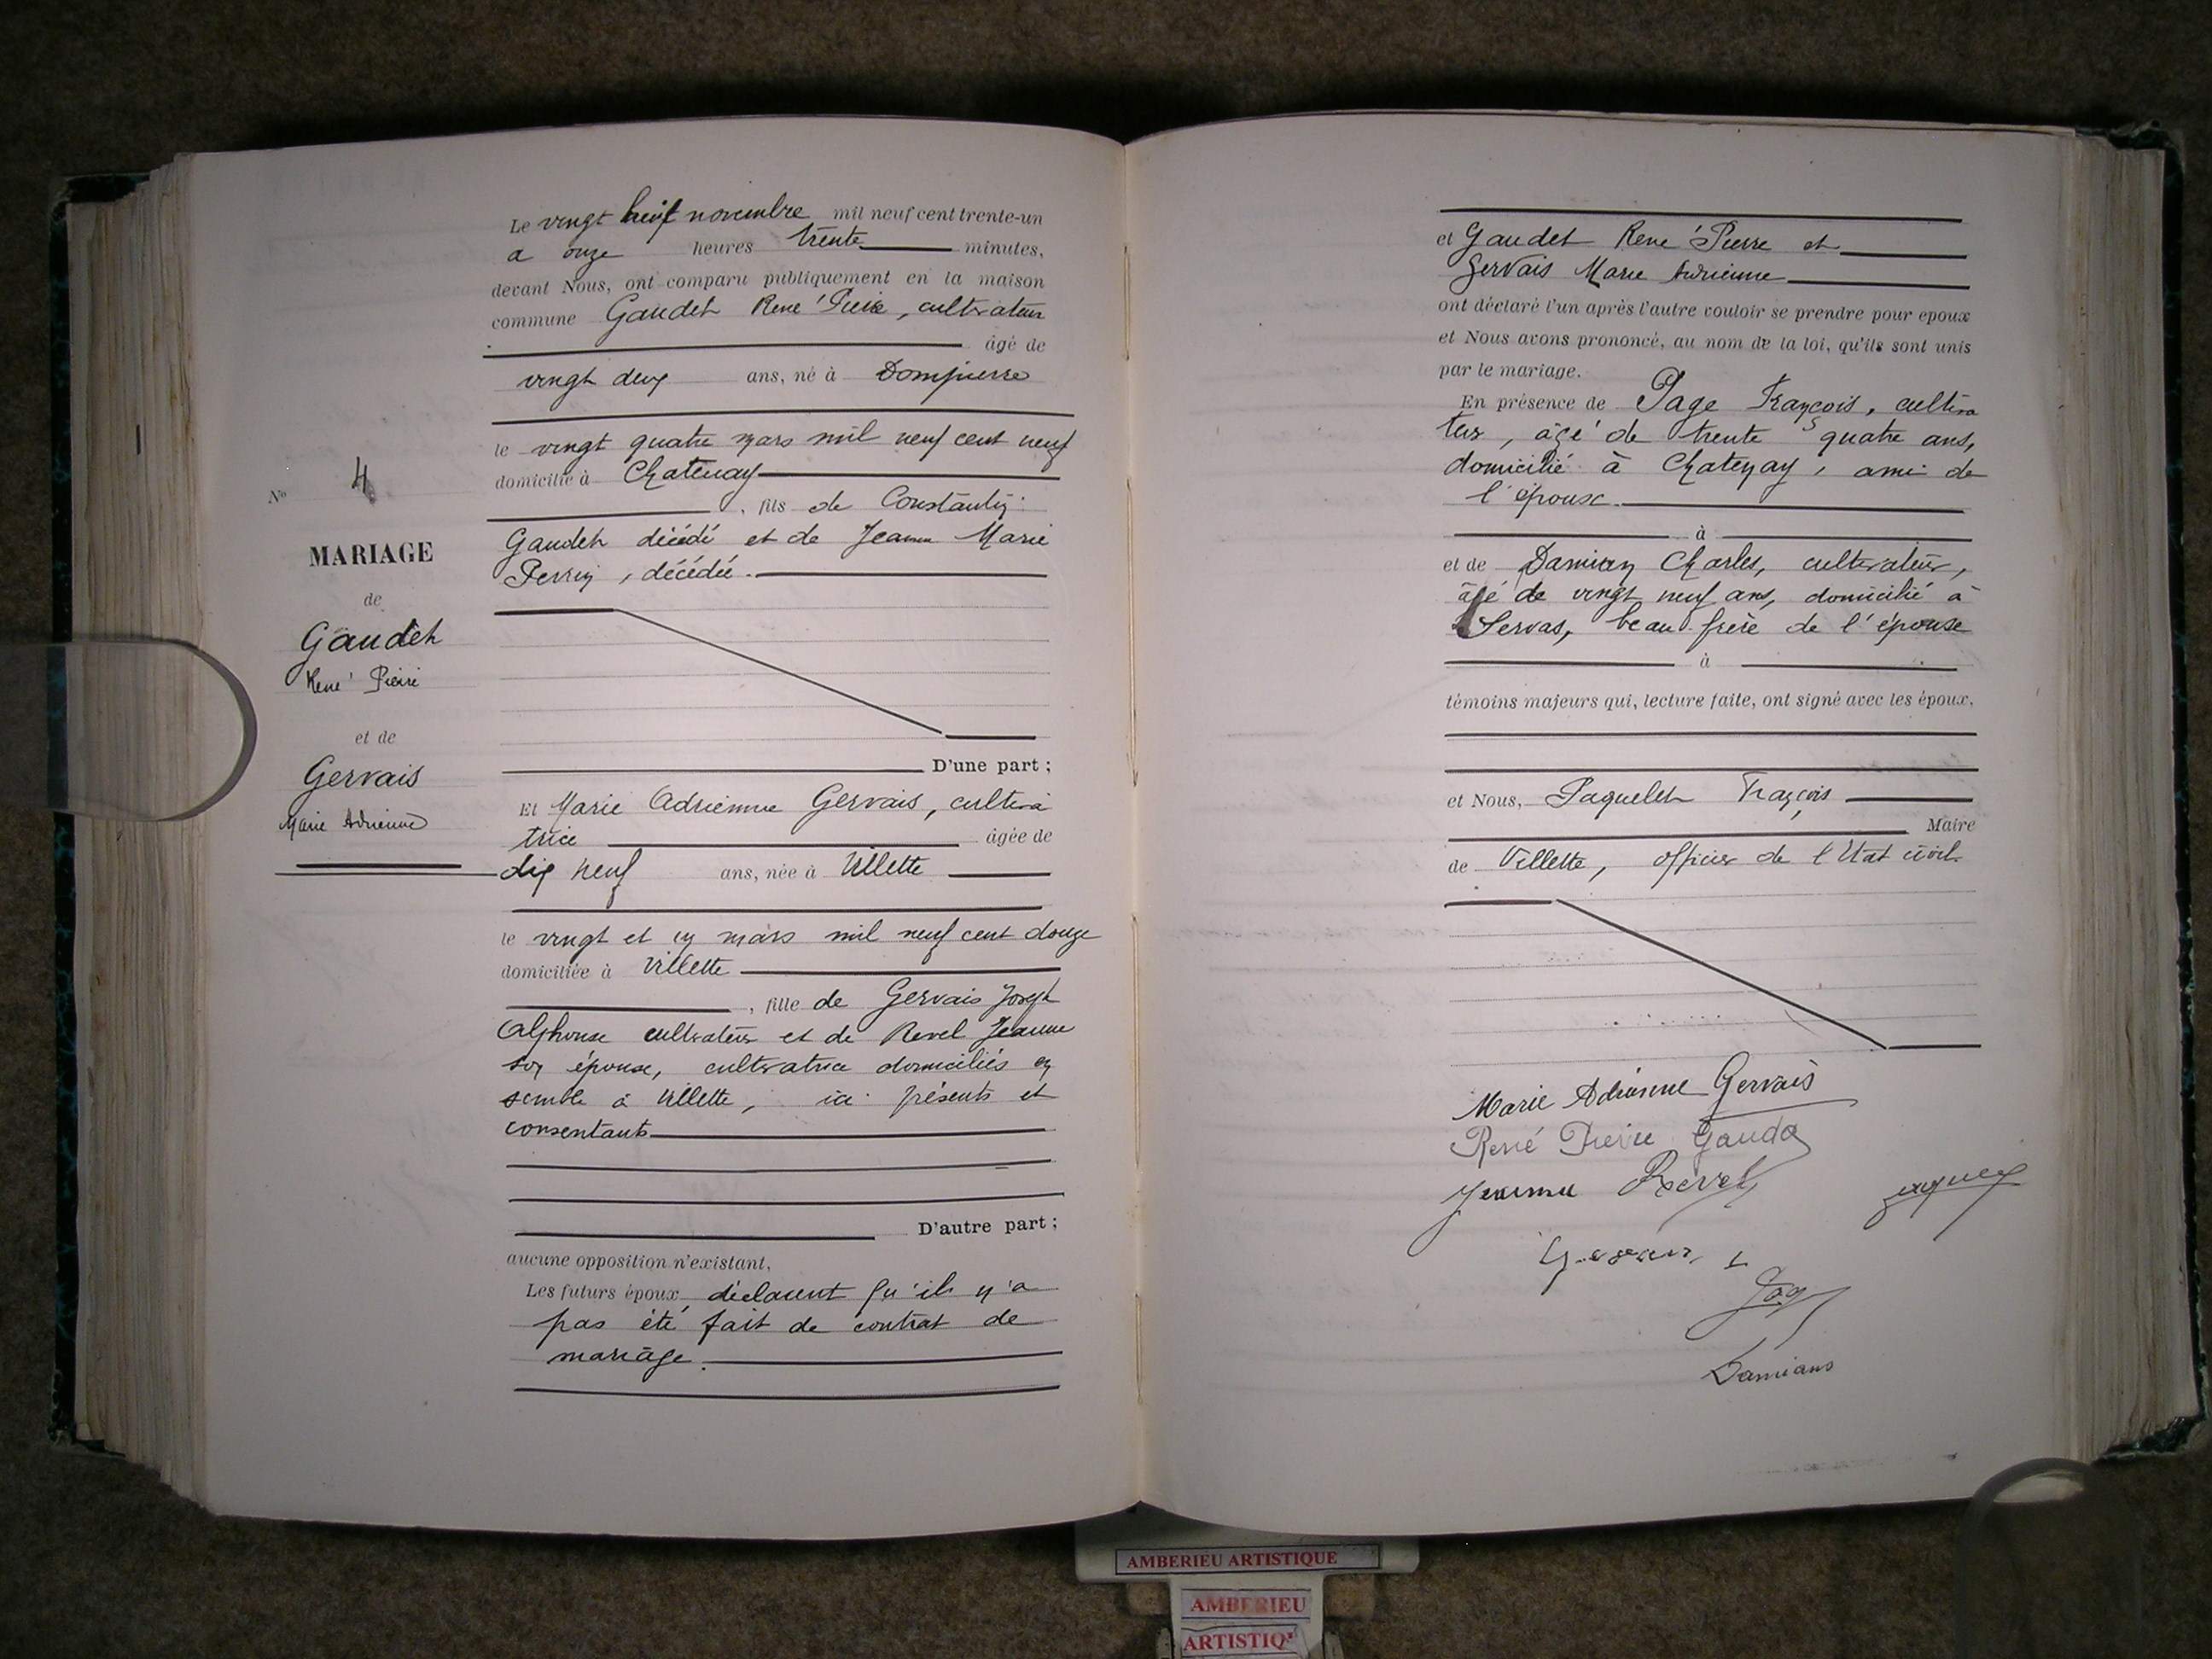 Le vingt huit novembre mil neuf cent trente-un
a onze heures trente minutes,
devant Nous, ont comparu publiquement en la maison
commune Gaudet René Pierre, cultivateur
âgé de
vingt deux ans, né à Dompierre
le vingt quatre mars mil neuf cent neuf
domicilié à Chatenay
, fils de Constantin
Gaudet décédé et de Jeanne Marie
Perrin, décédée.
N° 4
MARIAGE
de
Gaudet
René Pierre
et de
Gervais
Marie Adrienne
D'une part ;
Et Marie Adrienne Gervais, cultiva
trice âgée de
dix neuf ans, née à Villette
le vingt et un mars mil neuf cent douze
domiciliée à Villette
, fille de Gervais Joseph
Alphonse cultivateur et de Revel Jeanne
son épouse, cultivatrice domiciliés en
semble à Villette, ici présents et
consentants
D'autre part ;
aucune opposition n'existant,
Les futurs époux déclarent qu'il n'a
pas été fait de contrat de
mariage.
et Gaudet René Pierre et
Gervais Marie Adrienne
ont déclaré l'un après l'autre vouloir se prendre pour epoux
et Nous avons prononcé, au nom de la loi, qu'ils sont unis
par le mariage.
En présence de Page François, cultiva
teur, âgé de trente quatre ans,
domicilié à Chatenay, ami de
l'épouse.
à
et de Damian Charles, cultivateur,
âgé de vingt neuf ans, domicilié à
Servas, beau frère de l'épouse
à
témoins majeurs qui, lecture faite, ont signé avec les époux,
et Nous, Paquelet François
Maire
de Villette, officier de l'Etat civil
Marie Adrienne Gervais
René Pierre Gaudet
Jeanne Revel
Damians
AMBERIEU ARTISTIQUE
AMBERIEU
ARTISTIQ